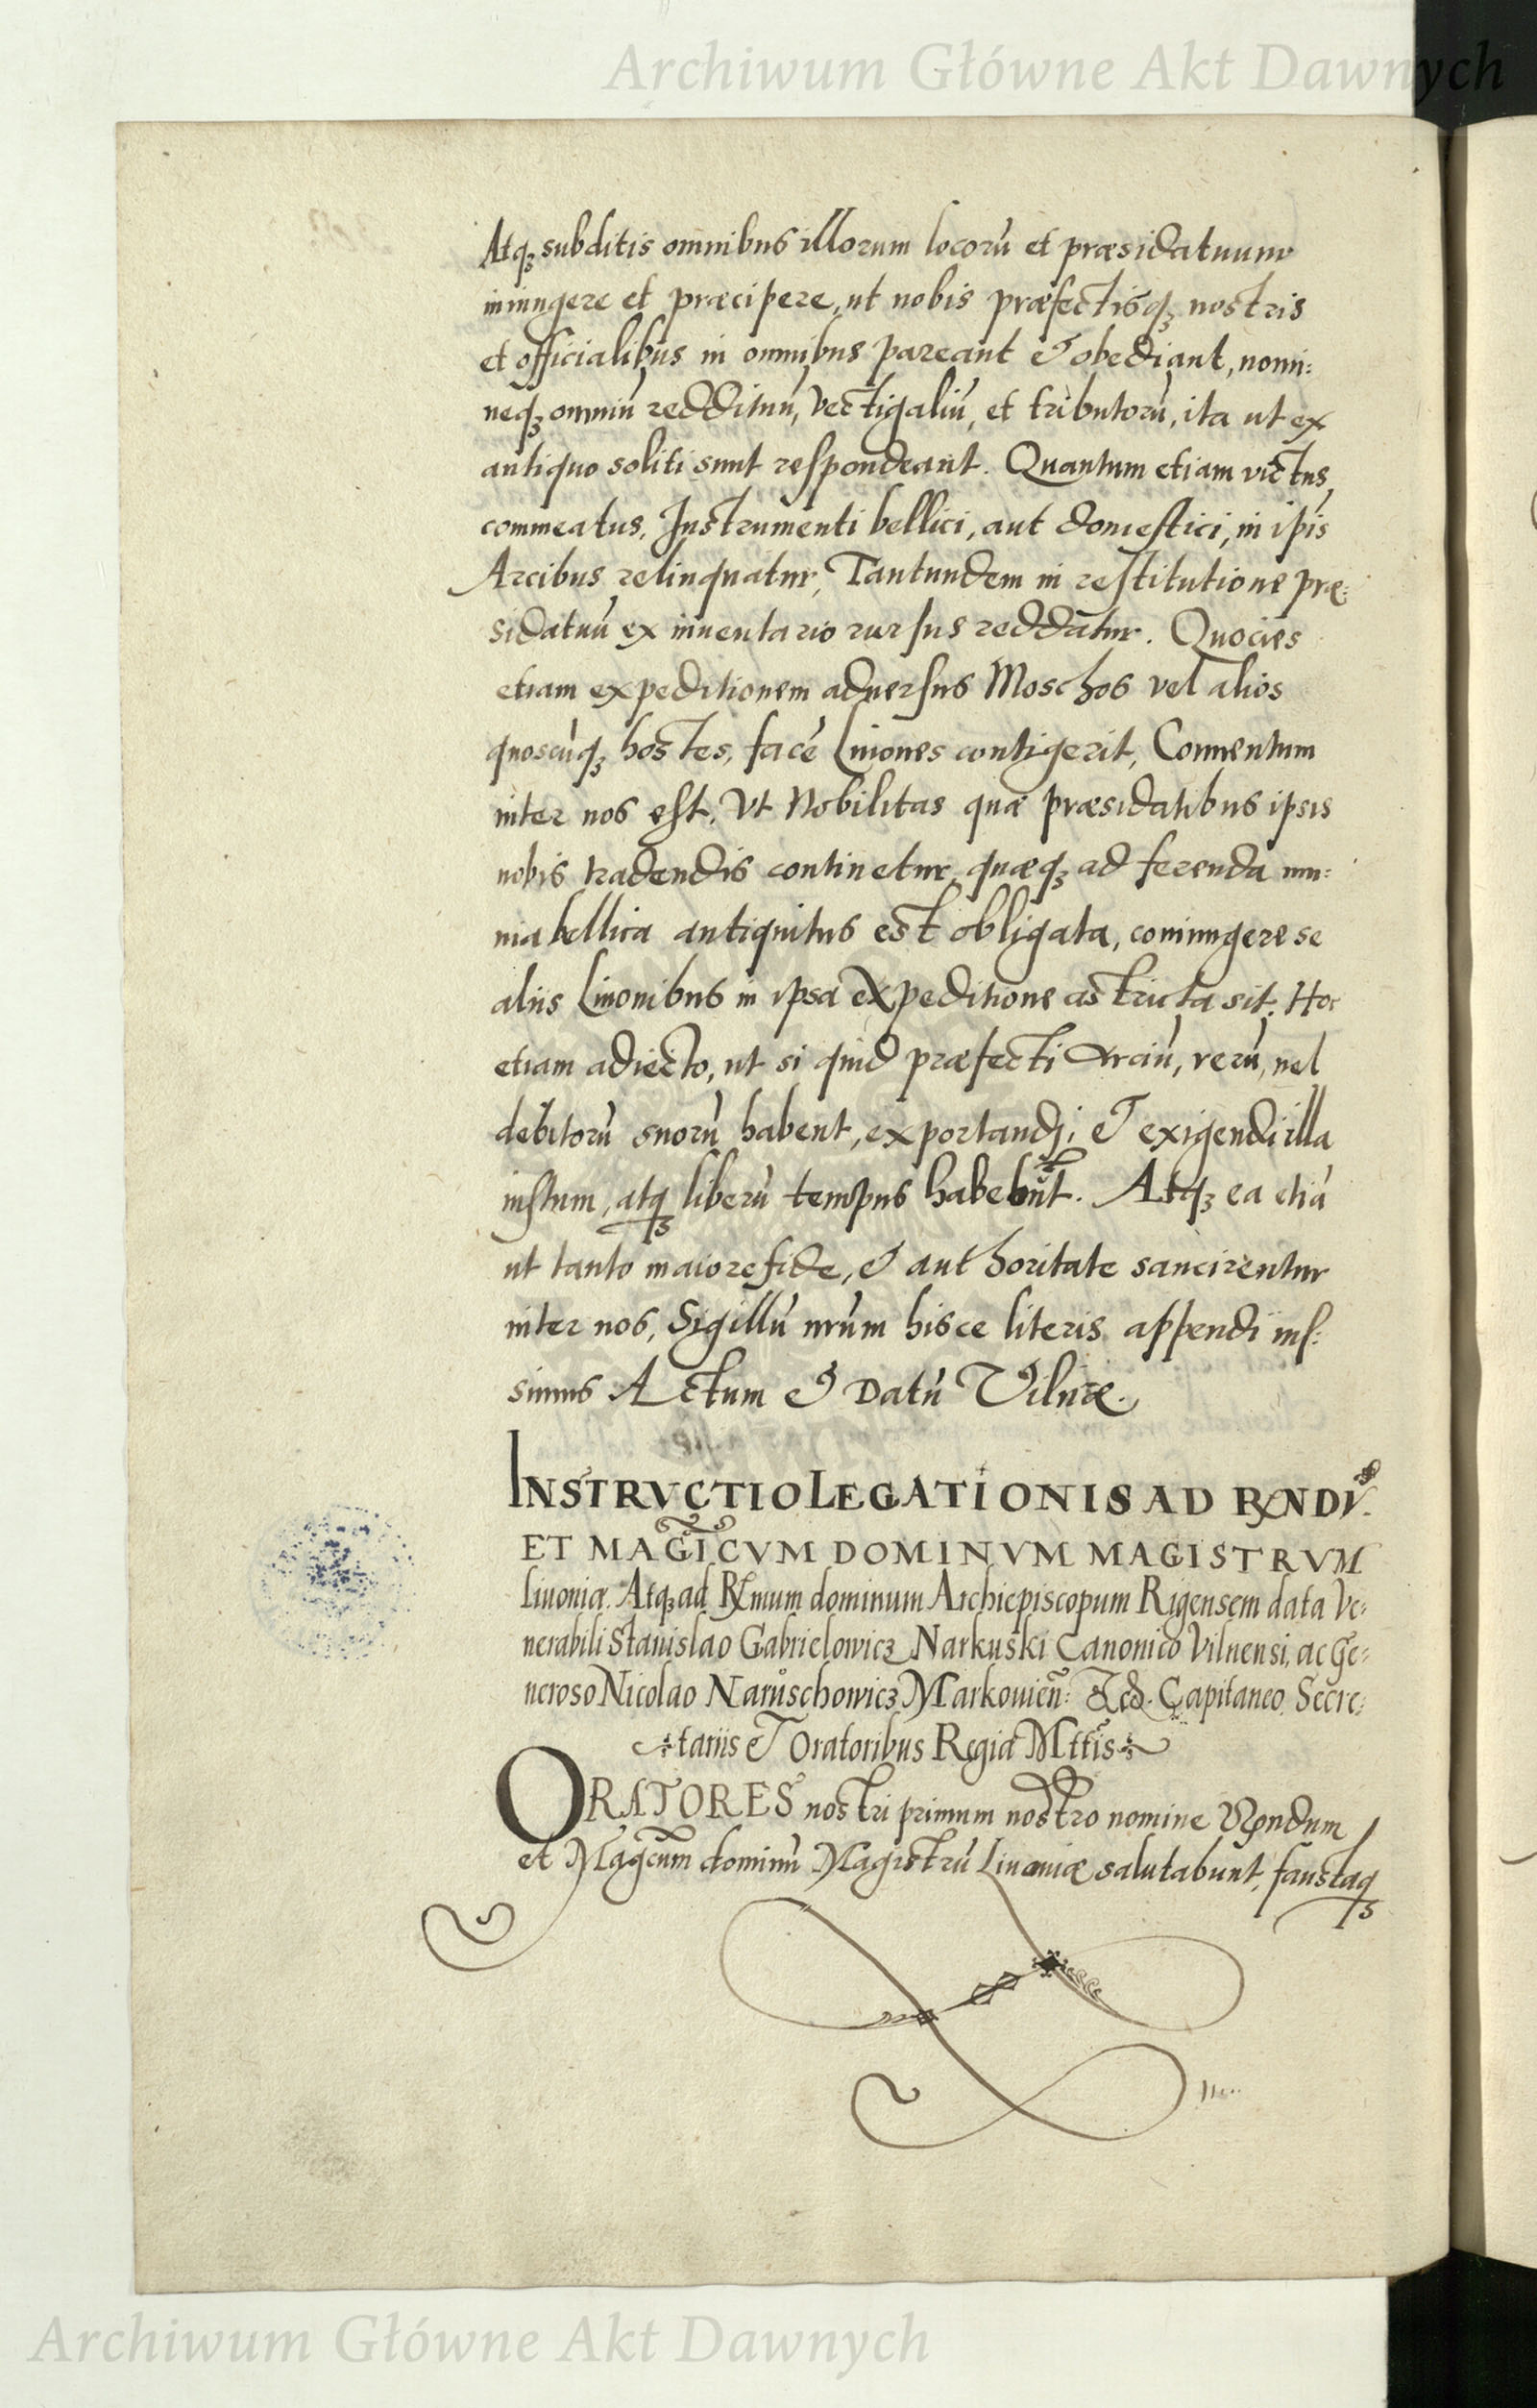 Archiwum Główne Akt Dawnych
Atqꝫ subditis omnibus illorum locorū et præsidatuum
iniungere et præcipere, ut nobis præfectisqꝫ nostris
et officialibus in omnibus pareant & obediant, nomi:
neqꝫ omniū reddituū, vectigaliū, et tributorū, ita ut ex
antiquo soliti sunt respondeant. Quantum etiam victus,
commeatus, Instrumenti bellici, aut domestici, in ipsis
Arcibus relinquatur, Tantundem in restitutione præ:
sidatuū ex inuentario rursus reddatur. Quocies
etiam expeditionem aduersus Moschos vel alios
quoscūqꝫ hostes, facē Liuones contigerit, Conuentum
inter nos est, Vt Nobilitas quæ præsidatibus ipsis
nobis tradendis continetur, quæqꝫ ad ferenda mu:
nia bellica antiquitus est obligata, coniungere se
aliis Liuonibus in ipsa expeditione astricta sit. Hoc
etiam adiecto, ut si quid præfecti Arciū, rerū, uel
debitorū suorū habent, exportandi, & exigendi illa
iustum, atqꝫ liberū tempus habebūt. Atqꝫ ea etiā
ut tanto maiore fide, & authoritate sancirentur
inter nos, Sigillū nrūm hisce literis appendi ius:
simus Actum & Datū Vilnæ.
INSTRVCTIO LEGATIONIS AD RNDV.
ET MAGICVM DOMINVM MAGISTRVM
Liuoniæ. Atqꝫ ad Rmum dominum Archiepiscopum Rigensem data Ve:
nerabili Stanislao Gabrielowicz Narkuski Canonico Vilnensi, ac Ge:
neroso Nicolao Narůschowicz Markouien̄: Capitaneo, Secre:
tariis & Oratoribus Regiæ Mttis
ORATORES nostri primum nostro nomine Rndum
et Magcum dominū Magistrū Liuoniæ salutabunt, faustaqꝫ
Archiwum Główne Akt Dawnych